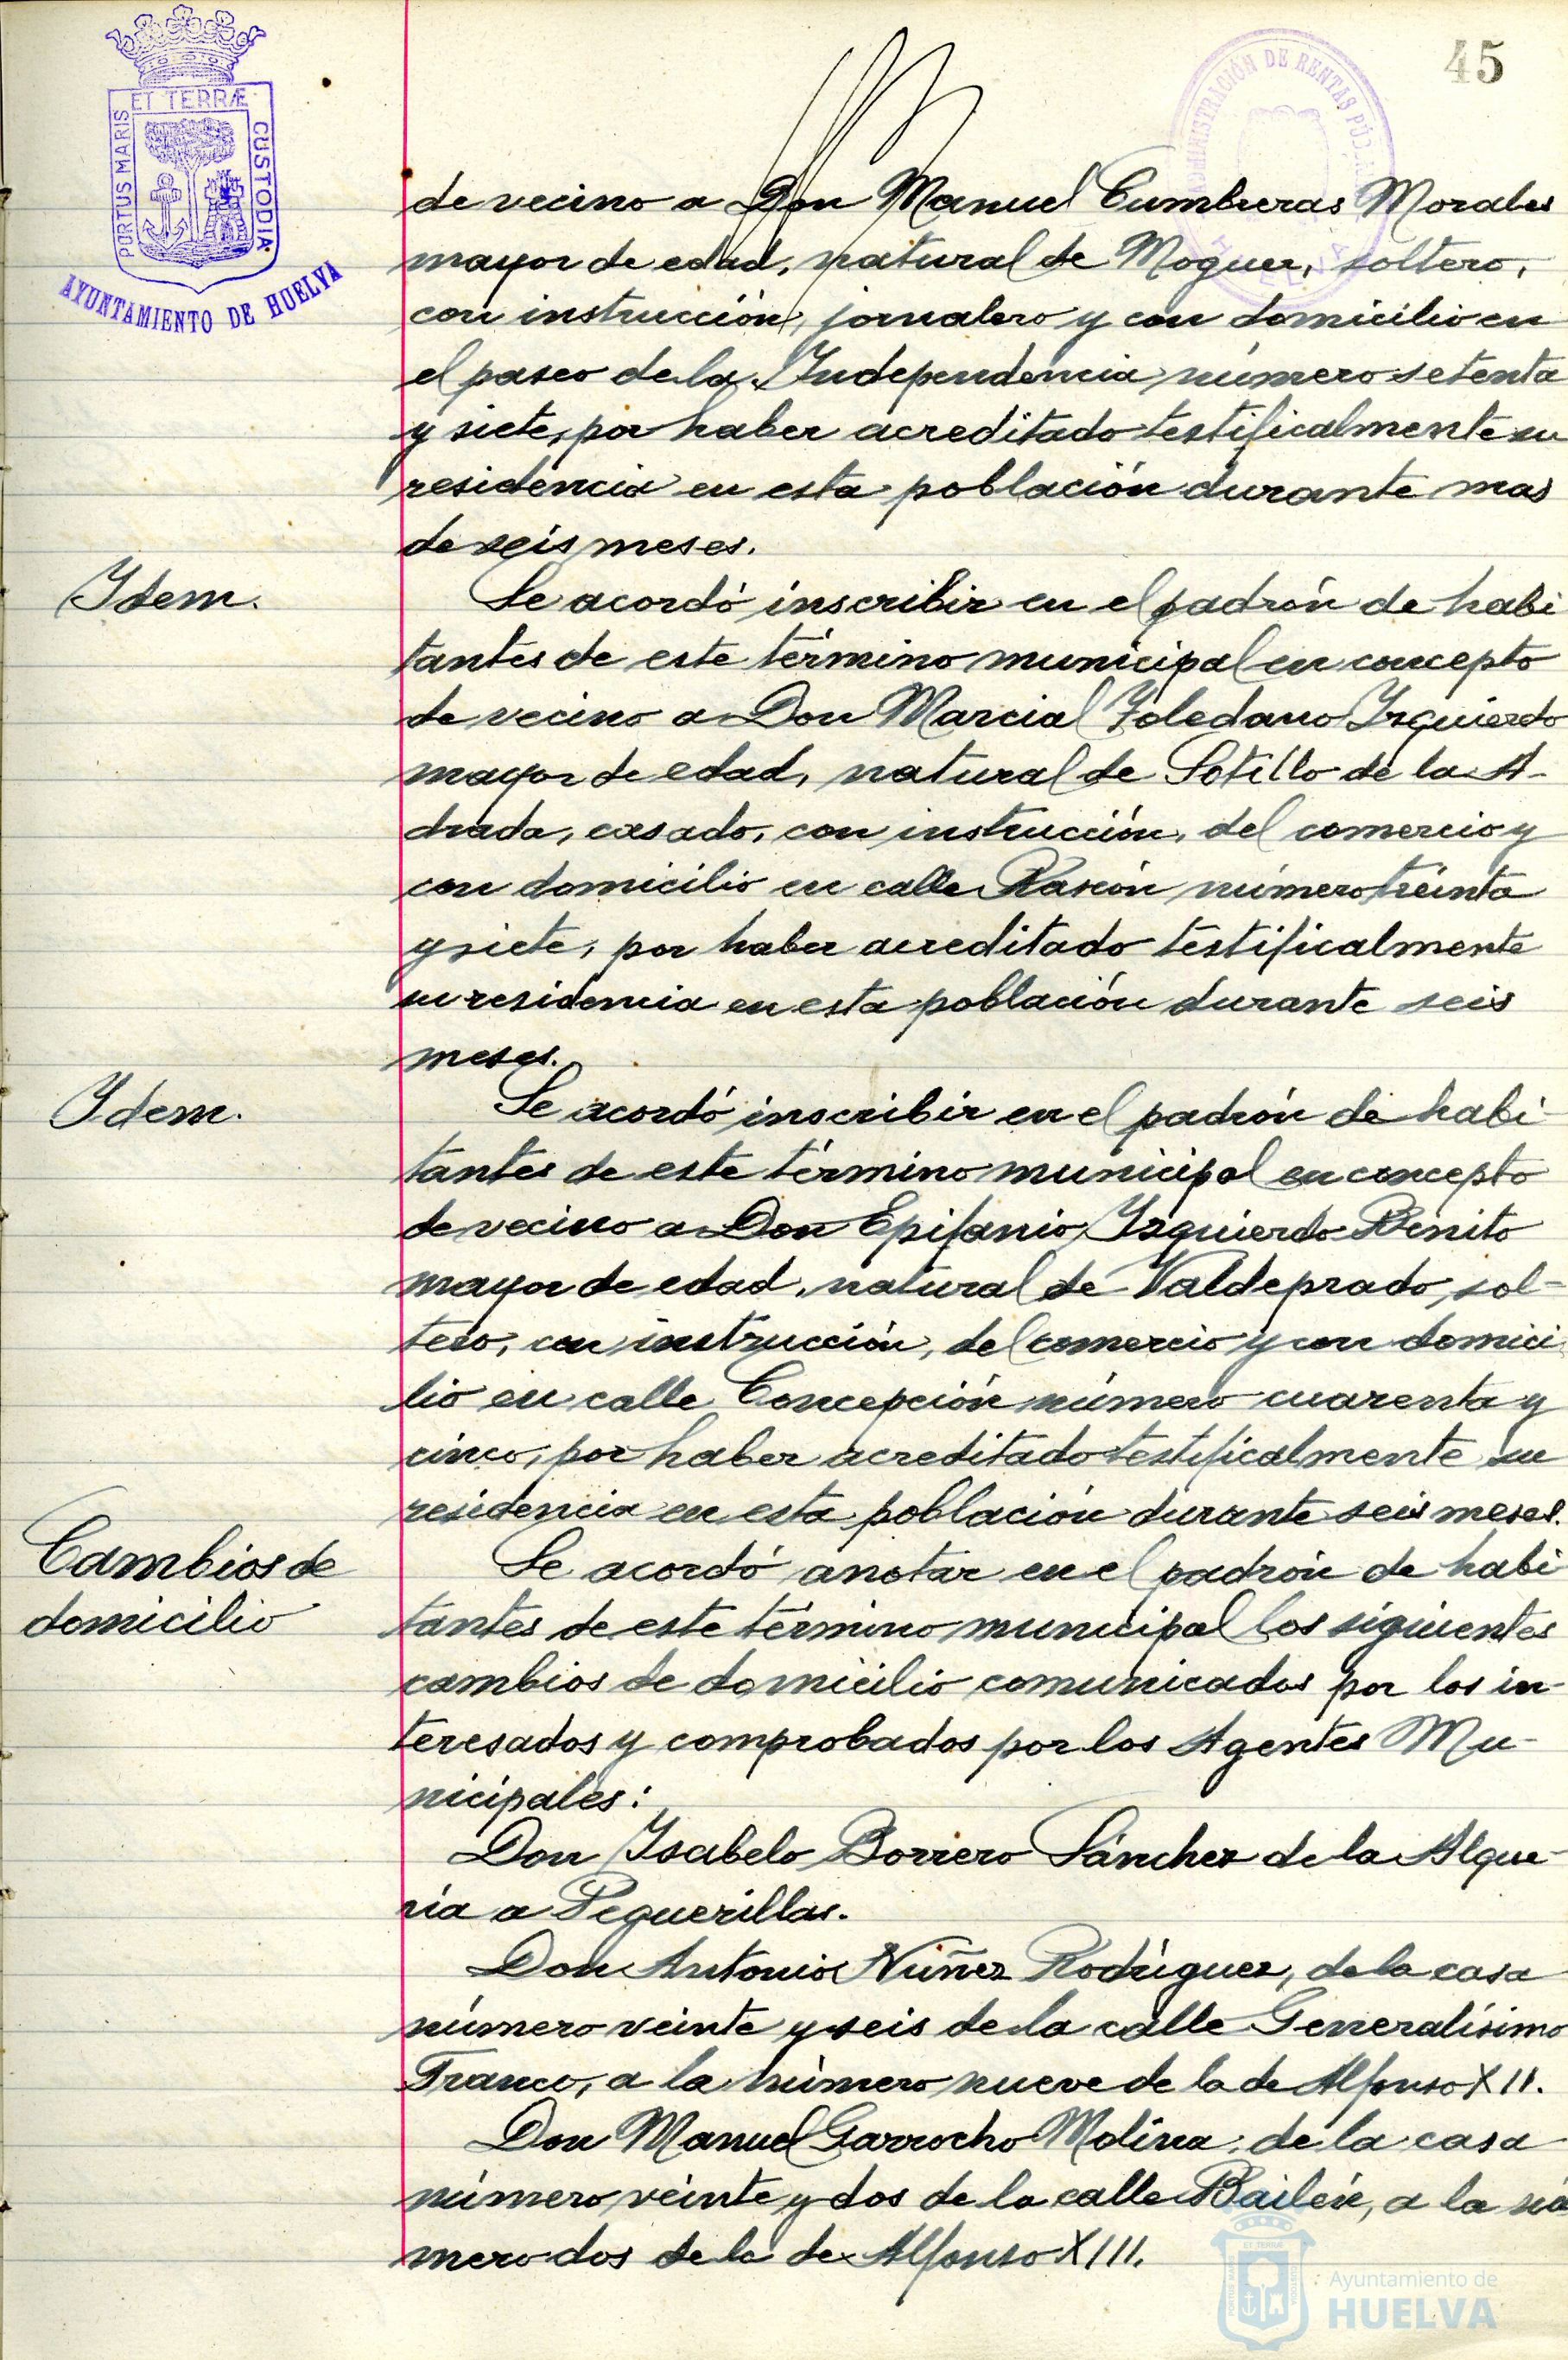 45
ET TERRÆ
PORTUS MARIS
CUSTODIA
AYUNTAMIENTO DE HUELVA
ADMINISTRACIÓN DE RENTAS PÚBLICAS
de vecino a Don Manuel Cumbreras Morales
mayor de edad, natural de Moguer, soltero,
con instrucción, jornalero y con domicilio en
el paseo de la Independencia número setenta
y siete, por haber acreditado testificalmente su
residencia en esta población durante mas
de seis meses.
Idem.
Se acordó inscribir en el padrón de habi
tantes de este término municipal en concepto
de vecino a Don Marcial Toledano Izquierdo
mayor de edad, natural de Sotillo de la A-
drada, casado, con instrucción, del comercio y
con domicilio en calle Rascón número treinta
y siete, por haber acreditado testificalmente
su residencia en esta población durante seis
meses.
Idem.
Se acordó inscribir en el padrón de habi-
tantes de este término municipal en concepto
de vecino a Don Epifanio Izquierdo Benito
mayor de edad, natural de Valdeprado, sol-
tero, con instrucción, del comercio y con domici
lio en calle Concepción número cuarenta y
cinco, por haber acreditado testificalmente su
residencia en esta población durante seis meses.
Cambios de
domicilio
Se acordó anotar en el padrón de habi
tantes de este término municipal los siguientes
cambios de domicilio comunicados por los in-
teresados y comprobados por los Agentes Mu-
nicipales:
Don Isabelo Borrero Sánchez de la Alque-
ría a Peguerillas.
Don Antonio Núñez Rodríguez, de la casa
número veinte y seis de la calle Generalísimo
Franco, a la número nueve de la de Alfonso XII.
Don Manuel Garrocho Molina, de la casa
número veinte y dos de la calle Bailén, a la nú
mero dos de la de Alfonso XIII.
Ayuntamiento de
HUELVA